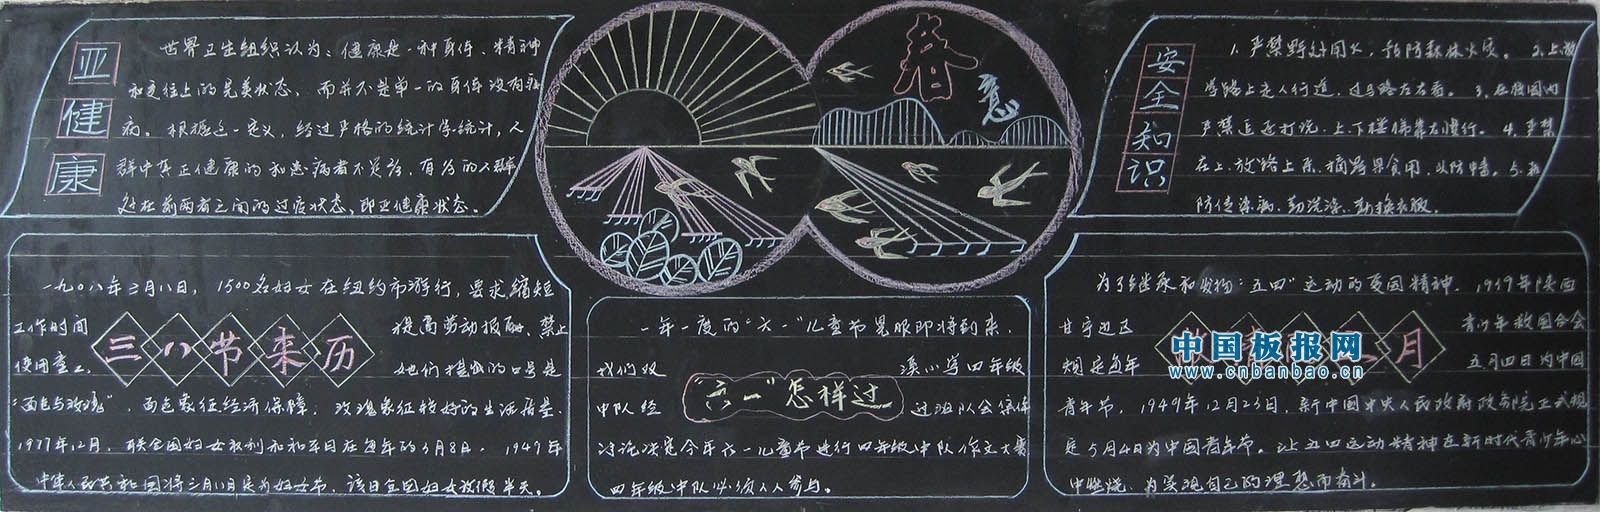 亚健康
世界卫生组织认为：健康是一种身体、精神
和交往上的完美状态，而并不是单一的身体没有疾
病。根据这一定义，经过严格的统计学统计，人
群中真正健康的和患病者不足
有
的人群
处在前两者之间的过度状态，即亚健康状态。
春意
安全知识
1、严禁野外用火，预防森林火灾。2、上放
学路上走人行道，过马路左右看。3、在校园内
严禁追逐打
上下楼梯靠右慢行。4、严禁
在上、放路上
摘野果食用，以防中毒。5、预
防传染病，勤洗澡、勤换衣服。
三八节来历
一九〇八年三月八日，1500名妇女在纽约市游行，要求缩短
工作时间
提高劳动报酬，禁止
使用童工
她们提出的口号是
“面包与玫瑰”，面包象征经济保障，玫瑰象征较好的生活质量。
1977年12月，联合国妇女权利和和平日在每年的3月8日。1949年
中华人民共和国将三月八日定为妇女节，该日全国妇女放假半天。
“六一”怎样过
一年一度的“六一”儿童节晃眼即将到来，
我们
溪小学四年级
中队经
过
队会
讨论决定今年六一儿童节进行四年级中队作文大赛
四年级中队必须人人参与。
为了继承和发扬“五四”运动的爱国精神，1939年陕西
甘宁边区
青少年救国合会
规定每年
五月四日为中国
青年节，1949年12月23日，新中国中央人民政府政务院正式规
定5月4日为中国青年节。让五四运动精神在新时代青少年心
中燃烧，为实现自己的理想而奋斗。
月
中国板报网
www.cnbanbao.cn